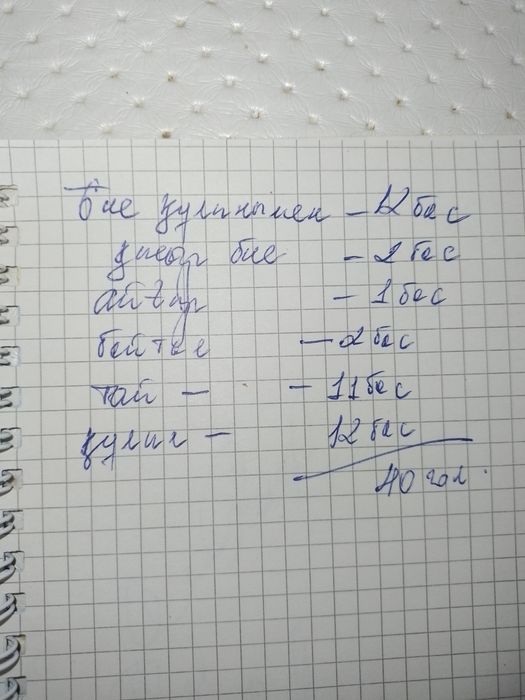 Бие құлынымен – 12 бас
қысыр бие – 2 бас
айғыр – 1 бас
байтал – 2 бас
тай – – 11 бас
құлын – 12 бас
40 гол.